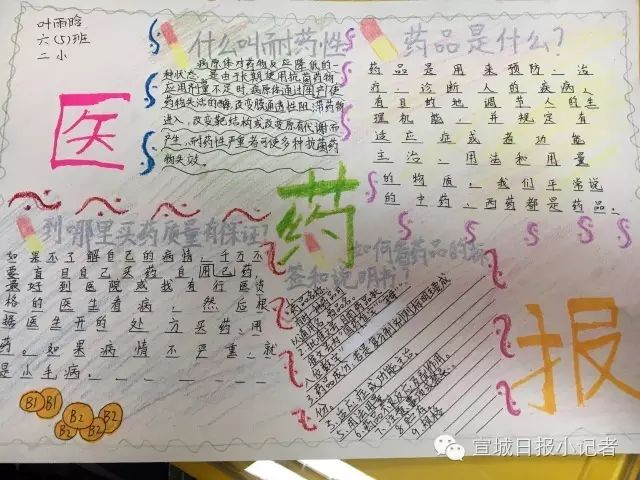 叶雨晗
六(5)班
二小
什么叫耐药性
病原体对药物反应降低的一
种状态,是由于长期使用抗菌药物
应用剂量不足时,病原体通过产生使
药物失活的酶,改变膜通透性阻滞药物
进入,改变靶结构或改变原有代谢而
产生,耐药性严重者可使多种抗菌药
物失效。
药品是什么?
药品是用来预防、治
疗、诊断人的疾病,
有目的地调节人的生
理机能,并规定有
适应症或者功能
主治、用法和用量
的物质,我们平常说
的中药、西药都是药品。
医
药
报
到哪里买药质量有保证?
如果不了解自己的病情,千万不
要盲目自己买药自用己药,
最好到医院或找有行医资
格的医生看病,然后根
据医生开的处方买药、用
药。如果病情不严重,就
是小毛病,
如何看药品的标
签和说明书?
4.适应症或功能主治
5.用法用量
8.贮存
9.规格
B1 B1
B2 B2 B2 B2
宣城日报小记者